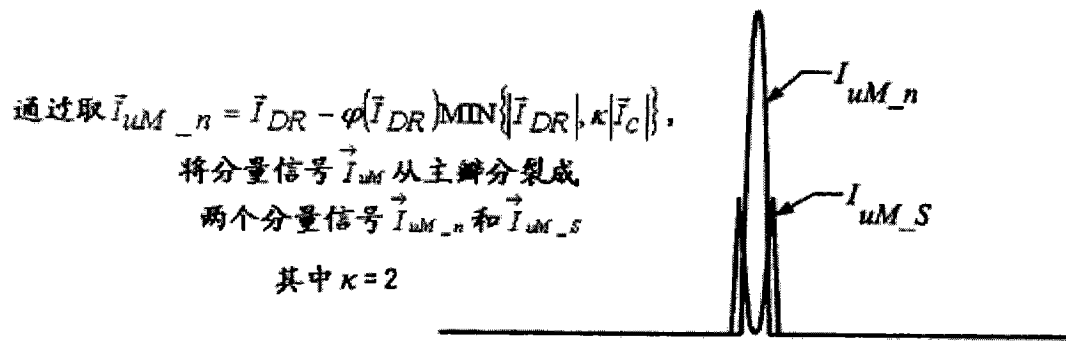 通过取 $\vec{I}_{uM\_n} = \vec{I}_{DR} - \varphi(\vec{I}_{DR})\mathrm{MIN}\{|\vec{I}_{DR}|, \kappa|\vec{I}_C|\}$,
将分量信号 $\vec{I}_{uM}$ 从主瓣分裂成
两个分量信号 $\vec{I}_{uM\_n}$ 和 $\vec{I}_{uM\_S}$
其中 κ = 2
$I_{uM\_n}$
$I_{uM\_S}$